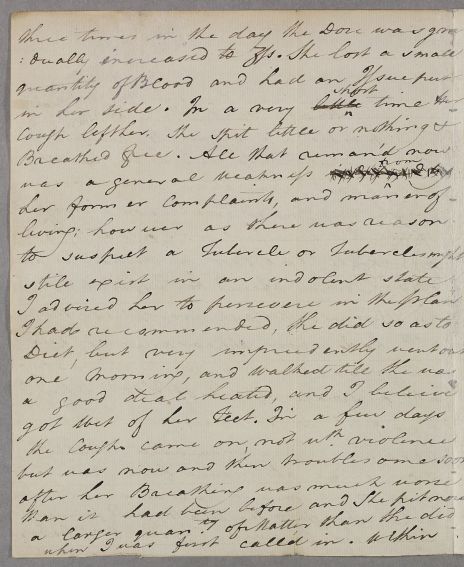 three times in the day the Dose was gra
:dually increased to ʒss. She lost a small
quantity of Blood and had an Issue put
in her side. In a very short time the
Cough left her, She spit little or nothing &
Breathed free. All that remain'd now
was a general weakness from
her former Complaints, and manner of
living; however as there was reason
to suspect a Tubercle or Tubercles might
still exist in an indolent state
I advized her to persevere in the plan
I had recommended, She did so as to
Diet, but very imprudently went out
one morning, and walked till she was
a good deal heated, and I beleive
got Wet of her Feet. In a few days
the Cough came on, not wth violence
but was now and then troublesome soon
after her Breathing was much worse
than it had been before and She spit now
a larger quanty of Matter than she did
when I was first called in. Within